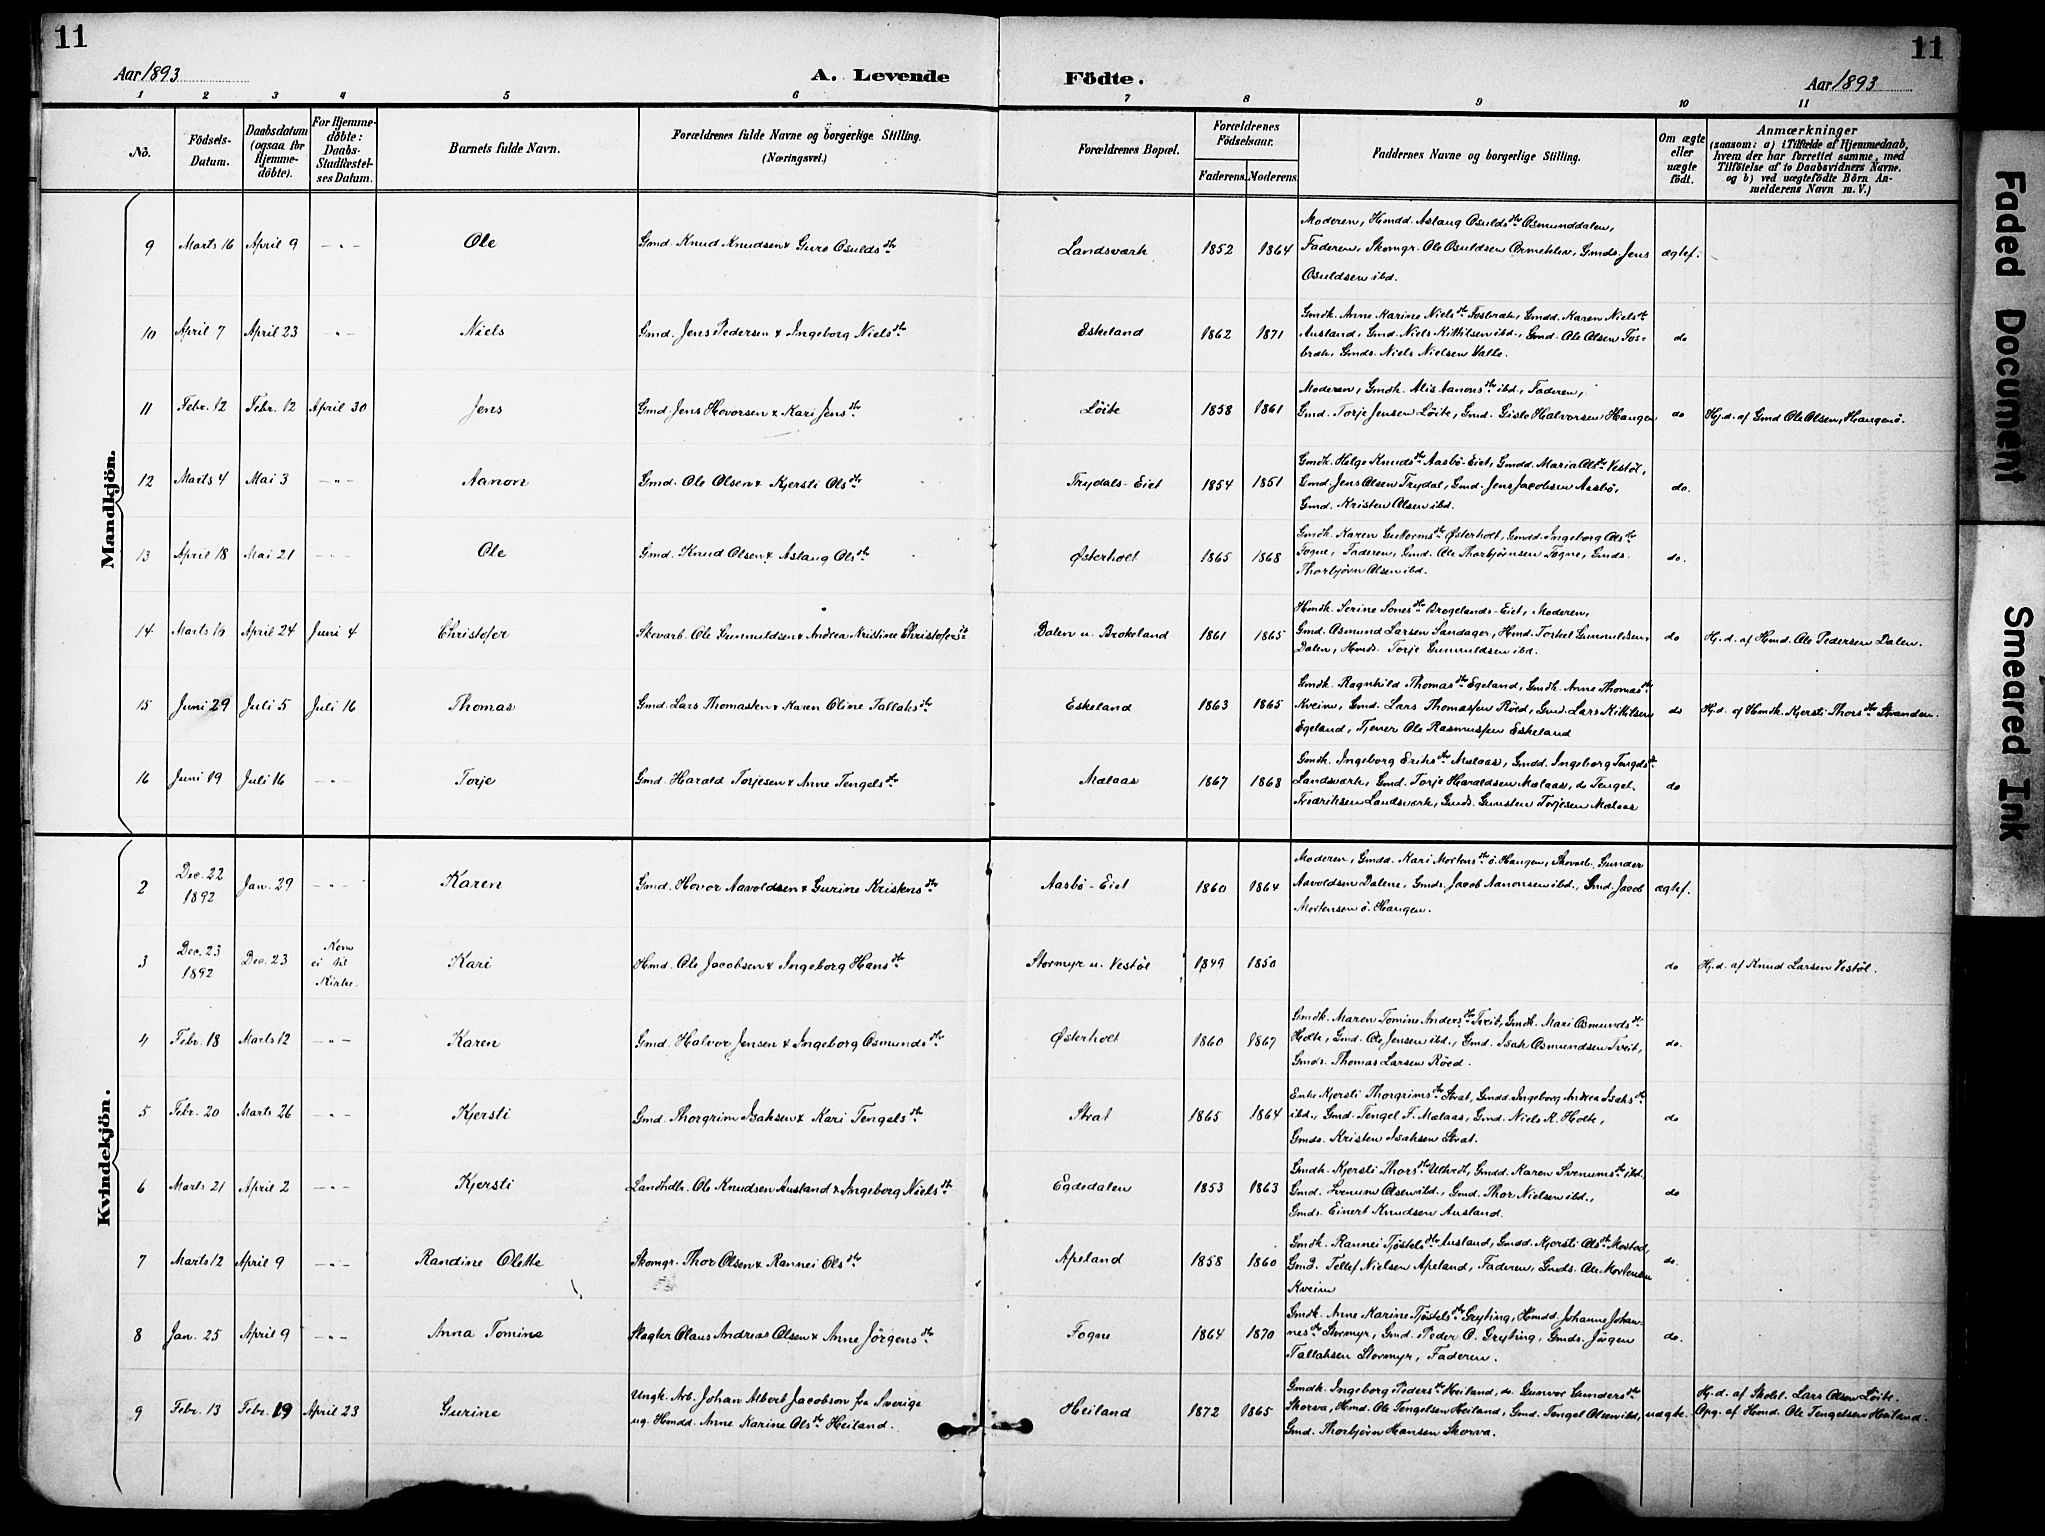 11
11
Aar 1893
A. Levende Födte.
Aar 1893
1 2 3 4 5 6 7 8 9 10 11
No. Födsels-Datum. Daabsdatum (ogsaa for Hjemmedöbte). For Hjemmedöbte: Daabs-Stadfæstelses Datum. Barnets fulde Navn. Forældrenes fulde Navne og borgerlige Stilling. (Næringsvei.) Forældrenes Bopæl. Forældrenes Födselsaar. Faderens. Moderens. Faddernes Navne og borgerlige Stilling. Om ægte eller uægte födt. Anmærkninger (saasom: a) i Tilfælde af Hjemmedaab, hvem der har forrettet samme, med Tilföielse af to Daabsvidners Navne. og b) ved uægtefödte Börn Anmelderens Navn m. V.)
Mandkjön.
9 Marts 16 April 9 -"- Ole Gmd. Knud Knudsen & Guro Osulds dtr Landsværk 1852 1864 Moderen, Hmdd. Aslaug Osulds dtr Osmunddalen,
Faderen, Skomgr. Ole Osuldsen Ormeklev, Gmds. Jens ægtef.
Osuldsen ibd.
10 April 7 April 23 -"- Niels Gmd. Jens Pedersen & Ingeborg Niels dtr Eskeland 1862 1871 Gmdk. Anne Karine Niels dtr Fosbræk, Gmdd. Karen Niels dtr
Ausland, Gmd. Niels Kittilsen ibd., Gmd. Ole Olsen Fos- do
bræk, Gmds. Niels Nielsen Valle.
11 Febr. 12 Febr. 12 April 30 Jens Gmd. Jens Hovorsen & Kari Jens dtr Löite 1858 1861 Moderen, Gmdk. Alis Aanons dtr ibd., Faderen,
Gmd. Torje Jensen Löite, Gmd. Gisle Halvorsen Haugen do Hj.d. af Gmd Ole Olsen, Haugenö.
12 Marts 4 Mai 3 -"- Aanon Gmd. Ole Olsen & Kjersti Ols dtr Trydals-Eiet 1854 1851 Gmdk. Helge Knuds dtr Aasbö-Eiet, Gmdd. Maria Ols dtr Vestöl,
Gmd. Jens Olsen Trydal, Gmd. Jens Jacobsen Aasbö, do.
Gmd. Kristen Olsen ibd.
13 April 18 Mai 21 -"- Ole Gmd. Knud Olsen & Aslaug Ols dtr Østerholt 1865 1868 Gmdk. Karen Guttorms dtr Østerholt, Gmdd. Ingeborg Ols dtr
Fogne, Faderen, Gmd. Ole Thorbjørnsen Fogne, Gmds. do.
Thorbjørn Olsen ibd.
14 Marts 10 April 24 Juni 4 Christofer Skovarb. Ole Gunnuldsen & Andrea Kristine Christofers dt Dalen u. Brokeland 1861 1865 Hmdk. Serine Sones dtr Brogelands-Eiet, Moderen,
Gmd. Osmund Larsen Sandager, Hmd. Torkel Gunnuldsen, do Hj.d. af Hmd. Ole Pedersen Dalen.
Dalen, Hmds. Torje Gunnuldsen ibd.
15 Juni 29 Juli 5 Juli 16 Thomas Gmd. Lars Thomassen & Karen Oline Tallaks dtr Eskeland 1863 1865 Gmdk. Ragnhild Thomas dtr Egeland, Gmdk. Anne Thomas dtr
Kveim, Gmd. Lars Thomassen Röed, Gmd. Lars Kittilsen do Hj.d. af Hmdk. Kjersti Thors dtr Stranden.
Egeland, Tjener Ole Rasmussen Eskeland
16 Juni 19 Juli 16 -"- Torje Gmd. Harald Torjesen & Anne Tengels dtr Malaas 1867 1868 Gmdk. Ingeborg Eriks dtr Malaas, Gmdd. Ingeborg Tengels dtr
Landsværk, Gmd. Torje Haraldsen Malaas, do Tengel do
Fredriksen Landsværk, Gmds. Gunsten Torjesen Malaas
Kvindekjön.
2 Dec. 22 1892 Jan. 29 -"- Karen Gmd. Hovor Aavoldsen & Gurine Kristens dtr Aasbö-Eiet 1860 1864 Moderen, Gmdd. Kari Mortens dtr ö. Haugen, Skovarb. Gunder
Aavoldsen Dalene, Gmds. Jacob Aanonsen ibd., Gmd. Jacob ægtef.
Mortensen ö. Haugen.
3 Dec. 23 1892 Dec. 23 Kom ei til Kirke. Kari Hmd. Ole Jacobsen & Ingeborg Hans dtr Stormyr u. Vestöl 1849 1850 do Hj.d. af Knud Larsen Vestöl.
4 Febr. 18 Marts 12 -"- Karen Gmd. Halvor Jensen & Ingeborg Osmunds dtr Østerholt 1860 1867 Gmdk. Maren Tomine Anders dtr Tveit, Gmdk. Mari Osmunds dtr
Holte, Gmd. Ole Jensen ibd., Gmd. Isak Osmundsen Tveit, do.
Gmds. Thomas Larsen Röed.
5 Febr. 20 Marts 26 -"- Kjersti Gmd. Thorgrim Isaksen & Kari Tengels dtr Strat 1865 1864 Enke Kjersti Thorgrims dtr Strat, Gmdd. Ingeborg Andrea Isaks dtr
ibd., Gmd. Tengel F. Malaas, Gmd. Niels K. Holte, do
Gmds. Kristen Isaksen Strat.
6 Marts 21 April 2 -"- Kjersti Landhdlr. Ole Knudsen Ausland & Ingeborg Niels dt Egdedalen 1853 1863 Gmdk. Kjersti Thors dtr, Gmdd. Karen Svenums dtr ibd.
Gmd. Svenum Olsen ibd., Gmd. Thor Nielsen ibd., do
Gmds. Einert Knudsen Ausland.
7 Marts 12 April 9 -"- Randine Olette Skomgr. Thor Olsen & Rannei Ols dtr Apeland 1858 1860 Gmdk. Rannei Tjöstels dtr Ausland, Gmdd. Kjersti Ols dtr Mostad,
Gmd. Tellef Nielsen Apeland, Faderen, Gmds. Ole Mortensen do.
Kveim
8 Jan. 25 April 9 -"- Anna Tomine Slagter Olaus Andreas Olsen & Anne Jörgens dtr Fogne 1864 1870 Gmdk. Anne Karine Tjöstels dtr Gryting, Hmdd. Johanne Johan-
nes dtr Stormyr, Gmd. Peder O. Gryting, Gmds. Jörgen do.
Tallaksen Stormyr, Faderen.
9 Febr. 13 Febr. 19 April 23 Gurine Ungk. Arb. Johan Albert Jacobson fra Sverige
ug. Hmdd. Anne Karine Ols dtr Heiland. Heiland 1872 1865 Gmdk. Ingeborg Peders dtr Heiland, do. Gunvor Gunders dtr
Skorva, Hmd. Ole Tengelsen Heiland, Gmd. Tengel Olsen ibd., uægte.
Gmd. Thorbjørn Hansen Skorva.
Hj.d. af Skolel. Lars Olsen Löite.
Opg. af Hmd. Ole Tengelsen Heiland.
Faded Document
Smeared Ink